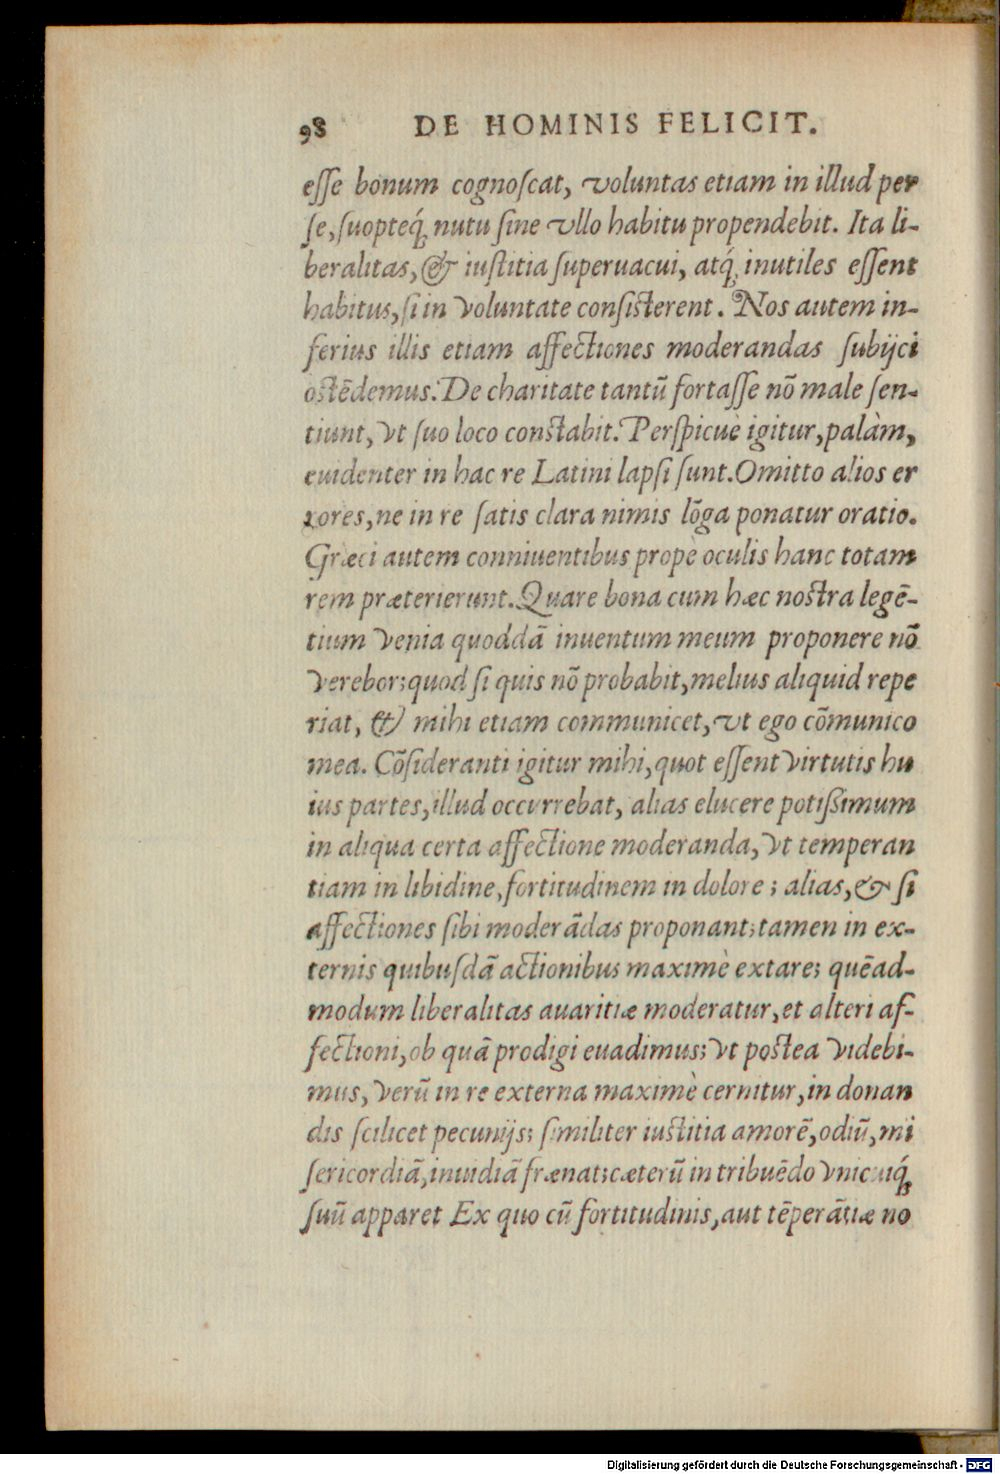 98 DE HOMINIS FELICIT.
eſſe bonum cognoſcat, voluntas etiam in illud per
ſe, ſuopteq́; nutu ſine vllo habitu propendebit. Ita li-
beralitas, & iuſtitia ſuperuacui, atq́; inutiles eſſent
habitus, ſi in voluntate conſiſterent. Nos autem in-
ferius illis etiam affectiones moderandas ſubijci
oſtēdemus. De charitate tantũ fortaſſe nõ male ſen-
tiunt, vt ſuo loco conſtabit. Perſpicuè igitur, palàm,
euidenter in hac re Latini lapſi ſunt. Omitto alios er
rores, ne in re ſatis clara nimis lõga ponatur oratio.
Græci autem conniuentibus propè oculis hanc totam
rem præterierunt. Quare bona cum hæc noſtra legē-
tium venia quoddã inuentum meum proponere nõ
verebor; quod ſi quis nõ probabit, melius aliquid repe
riat, & mihi etiam communicet, vt ego cõmunico
mea. Cõſideranti igitur mihi, quot eſſent virtutis hu
ius partes, illud occurrebat, alias elucere potißimum
in aliqua certa affectione moderanda, vt temperan
tiam in libidine, fortitudinem in dolore; alias, & ſi
affectiones ſibi moderãdas proponant; tamen in ex-
ternis quibuſdã actionibus maximè extare; quēad-
modum liberalitas auaritiæ moderatur, et alteri af-
fectioni, ob quã prodigi euadimus; vt poſtea videbi-
mus, verũ in re externa maximè cernitur, in donan
dis ſcilicet pecunijs; ſimiliter iuſtitia amorē, odiũ, mi
ſericordiã, inuidiã frænat; cæterũ in tribuēdo vnicuiq́;
ſuũ apparet Ex quo cũ fortitudinis, aut tēperãtiæ no
Digitalisierung gefördert durch die Deutsche Forschungsgemeinschaft - DFG